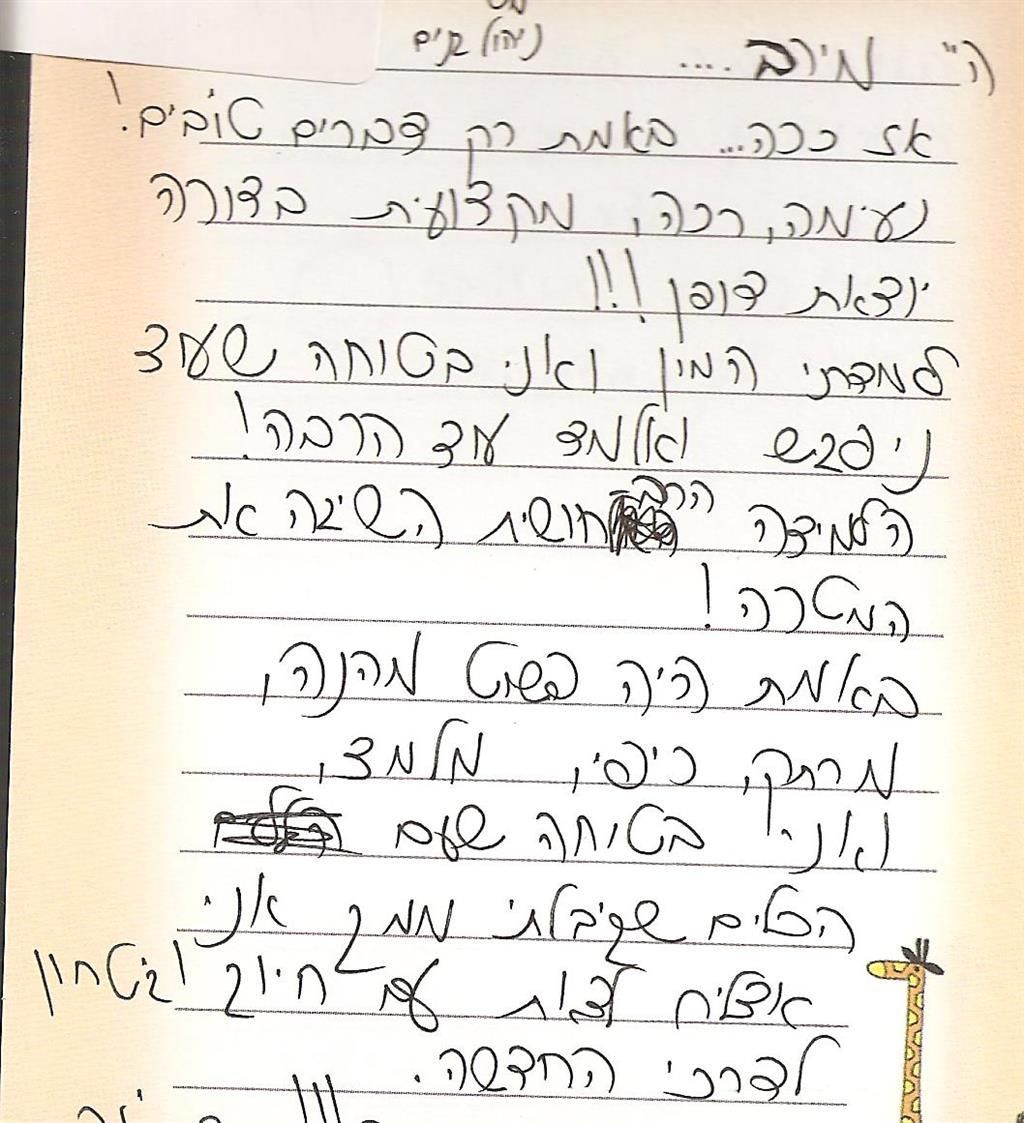 ניהול קיים
ה" מירב ....
אז ככה... באמת רק דברים טובים!
נעימה, רכה, מקצועית בצורה
יוצאת דופן!!!
למדתי המון ואני בטוחה שעוד
ניפגש ואלמד עוד הרבה!
הלמידה הרב חושית השיגה את
המטרה!
באמת היה פשוט מהנה,
מרתק, כיפי, מלמד,
ואני בטוחה שעם
הכלים שקיבלתי ממך אני
אצליח לצאת עם חיוך וביטחון
לדרכי החדשה.